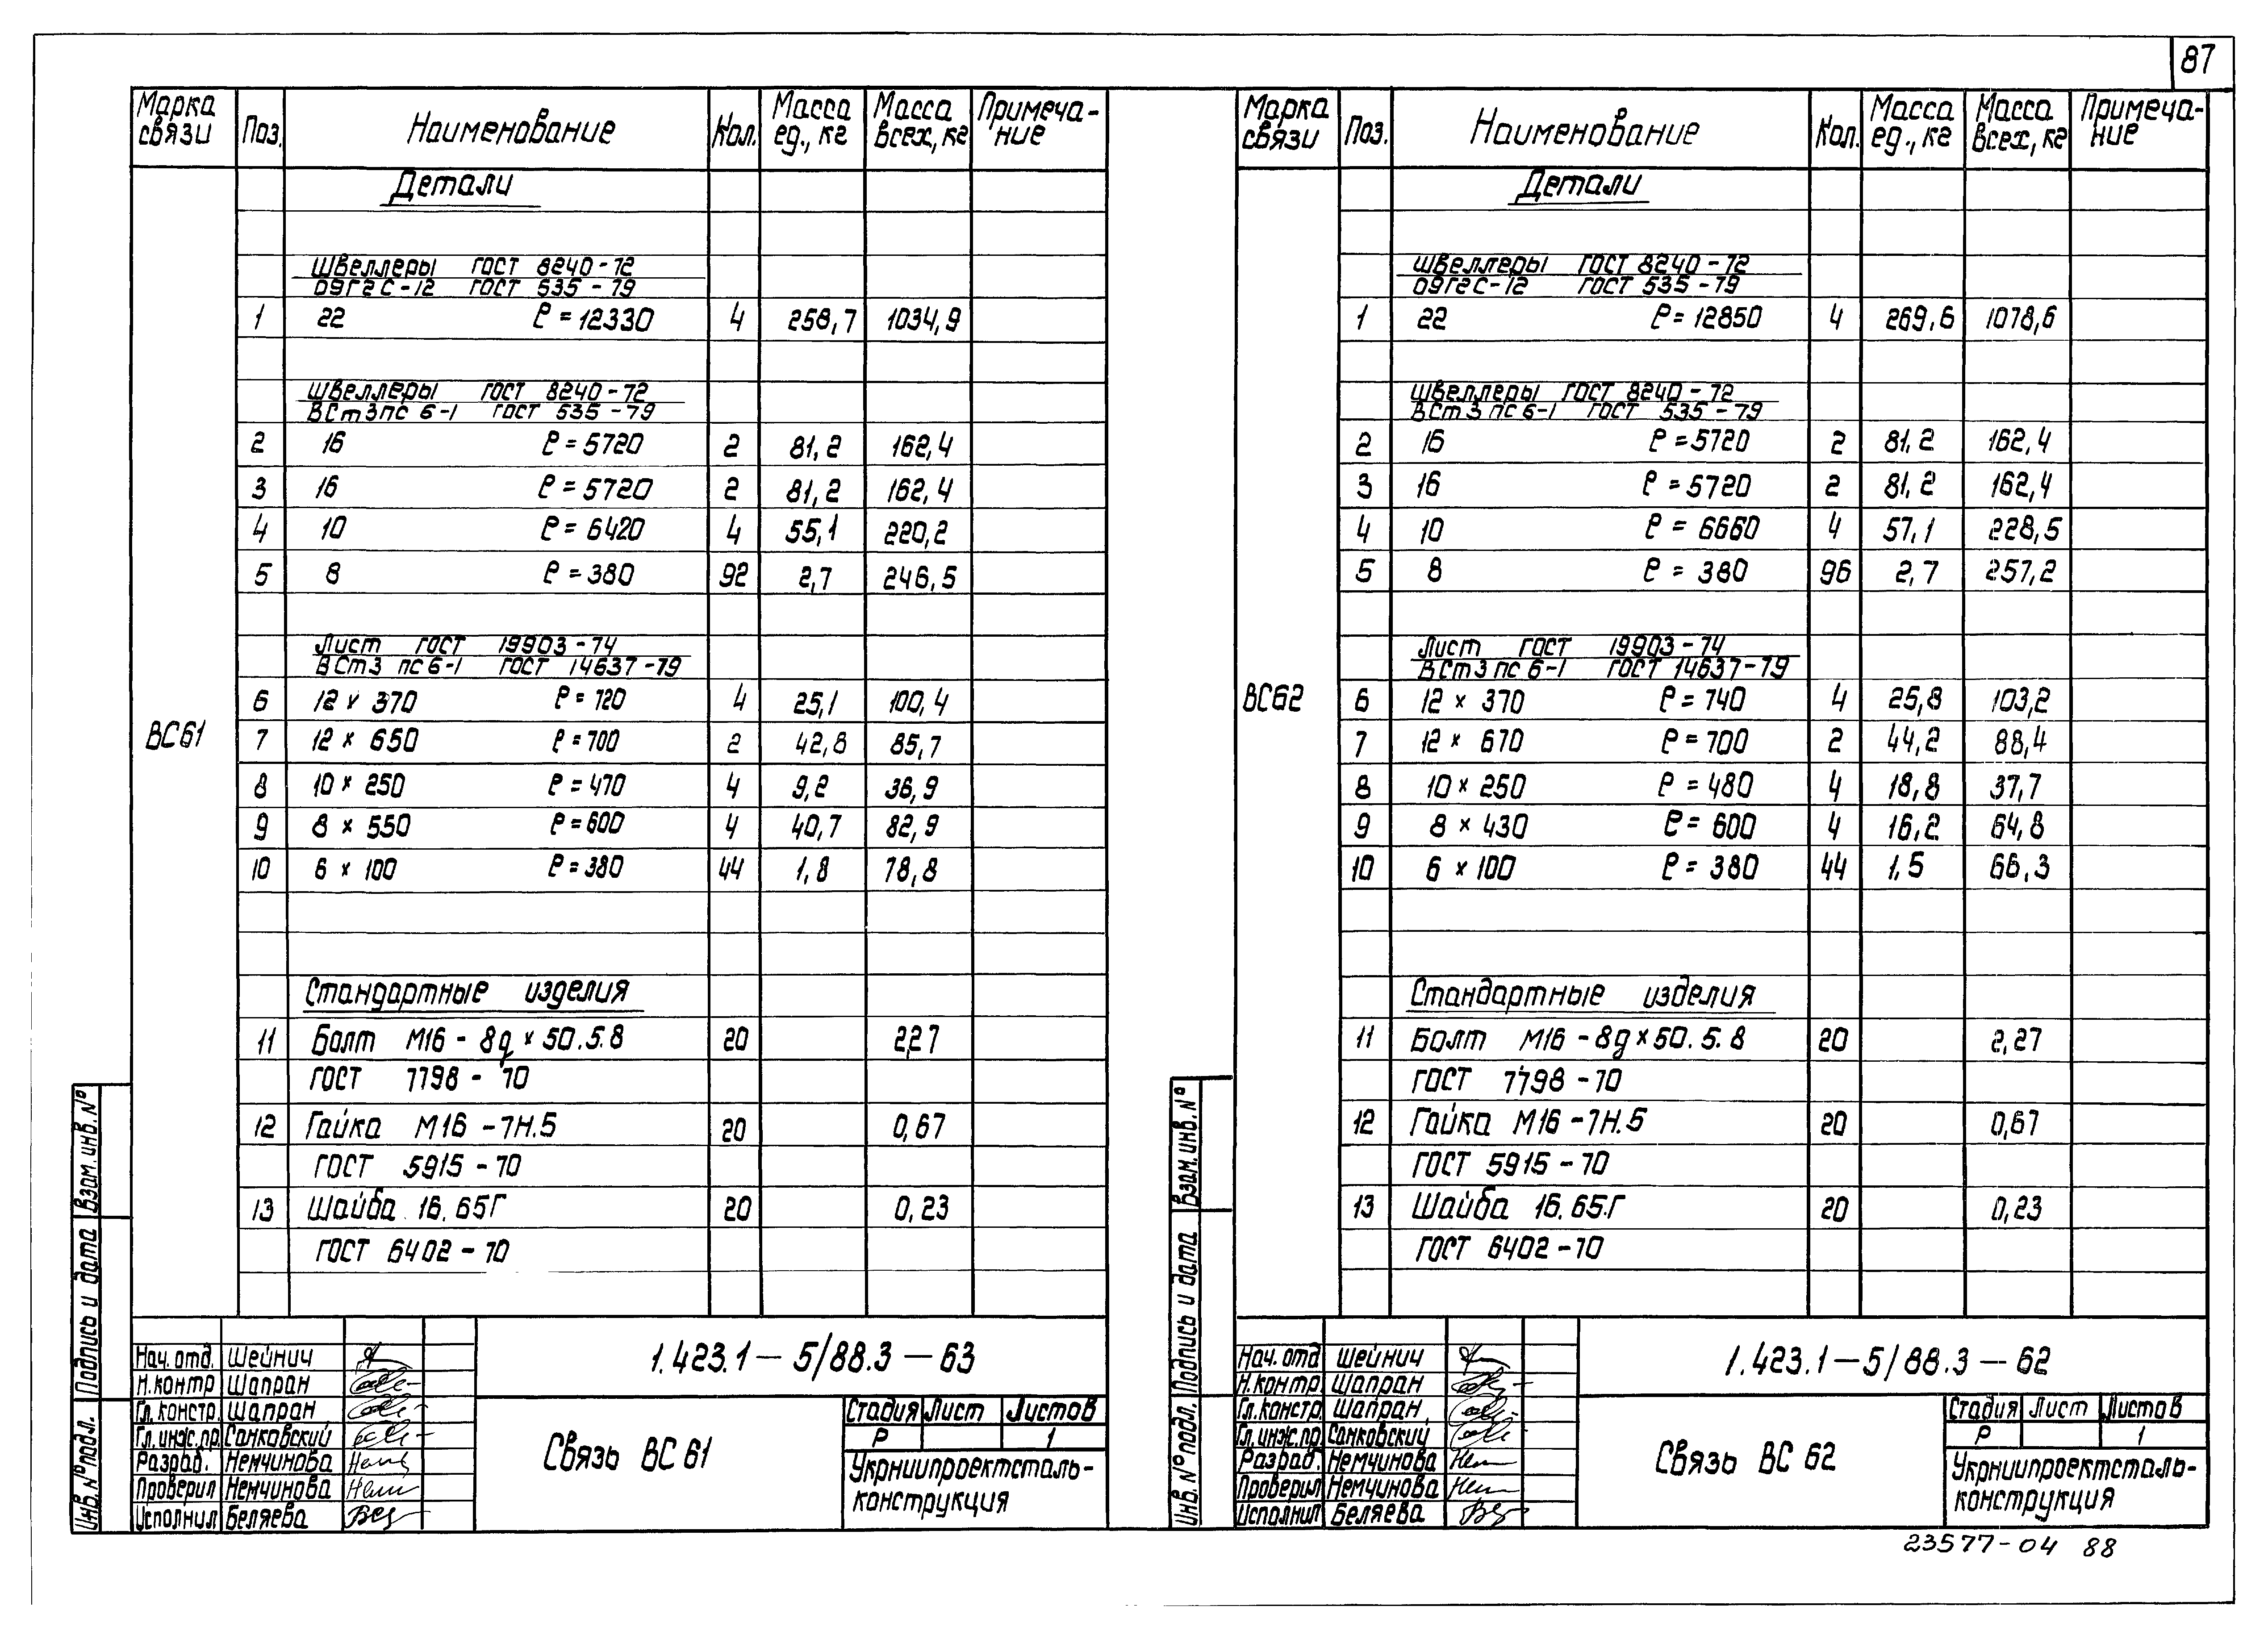 87
Марка связи Поз. Наименование Кол. Масса ед., кг Масса всех, кг Примечание
Детали
Швеллеры ГОСТ 8240-72
09Г2С-12 ГОСТ 535-79
1 22 ℓ=12330 4 258,7 1034,9
Швеллеры ГОСТ 8240-72
ВСт3пс6-1 ГОСТ 535-79
2 16 ℓ=5720 2 81,2 162,4
3 16 ℓ=5720 2 81,2 162,4
4 10 ℓ=6420 4 55,1 220,2
5 8 ℓ=380 92 2,7 246,5
Лист ГОСТ 19903-74
ВСт3пс6-1 ГОСТ 14637-79
6 12 × 370 ℓ=720 4 25,1 100,4
ВС61 7 12 × 650 ℓ=700 2 42,8 85,7
8 10 × 250 ℓ=470 4 9,2 36,9
9 8 × 550 ℓ=600 4 40,7 82,9
10 6 × 100 ℓ=380 44 1,8 78,8
Стандартные изделия
11 Болт М16-8g×50.5.8 20 2,27
ГОСТ 7798-70
12 Гайка М16-7Н.5 20 0,67
ГОСТ 5915-70
13 Шайба 16.65Г 20 0,23
ГОСТ 6402-70
Взам.инв.№
Подпись и дата
Инв.№подл.
Нач.отд. Шейнич
Н.контр Шапран
Гл.констр. Шапран
Гл.инж.пр. Санковский
Разраб. Немчинова
Проверил Немчинова
Исполнил Беляева
1.423.1-5/88.3-63
Связь ВС 61
Стадия Лист Листов
Р 1
Укрниипроектсталь-
конструкция
Марка связи Поз. Наименование Кол. Масса ед., кг Масса всех, кг Примечание
Детали
Швеллеры ГОСТ 8240-72
09Г2С-12 ГОСТ 535-79
1 22 ℓ=12850 4 269,6 1078,6
Швеллеры ГОСТ 8240-72
ВСт3пс6-1 ГОСТ 535-79
2 16 ℓ=5720 2 81,2 162,4
3 16 ℓ=5720 2 81,2 162,4
4 10 ℓ=6660 4 57,1 228,5
5 8 ℓ=380 96 2,7 257,2
Лист ГОСТ 19903-74
ВСт3пс6-1 ГОСТ 14637-79
ВС62 6 12 × 370 ℓ=740 4 25,8 103,2
7 12 × 670 ℓ=700 2 44,2 88,4
8 10 × 250 ℓ=480 4 18,8 37,7
9 8 × 430 ℓ=600 4 16,2 64,8
10 6 × 100 ℓ=380 44 1,5 66,3
Стандартные изделия
11 Болт М16-8g×50.5.8 20 2,27
ГОСТ 7798-70
12 Гайка М16-7Н.5 20 0,67
ГОСТ 5915-70
13 Шайба 16.65.Г 20 0,23
ГОСТ 6402-70
Взам.инв.№
Подпись и дата
Инв.№подл.
Нач.отд Шейнич
Н.контр. Шапран
Гл.констр. Шапран
Гл.инж.пр. Санковский
Разраб. Немчинова
Проверил Немчинова
Исполнил Беляева
1.423.1-5/88.3-62
Связь ВС 62
Стадия Лист Листов
Р 1
Укрниипроектсталь-
конструкция
23577-04 88